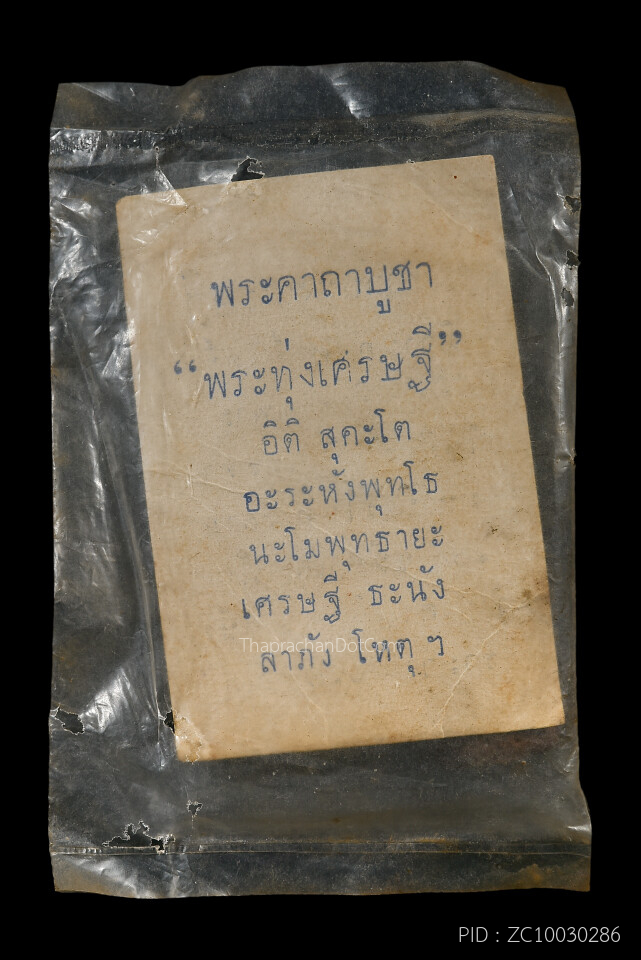 พระคาถาบูชา
“พระทุ่งเศรษฐี”
อิติ สุคะโต
อะระหังพุทโธ
นะโมพุทธายะ
เศรษฐี ธะนัง
ลาภัง โหตุ ฯ
ThaprachanDotCom
PID : ZC10030286